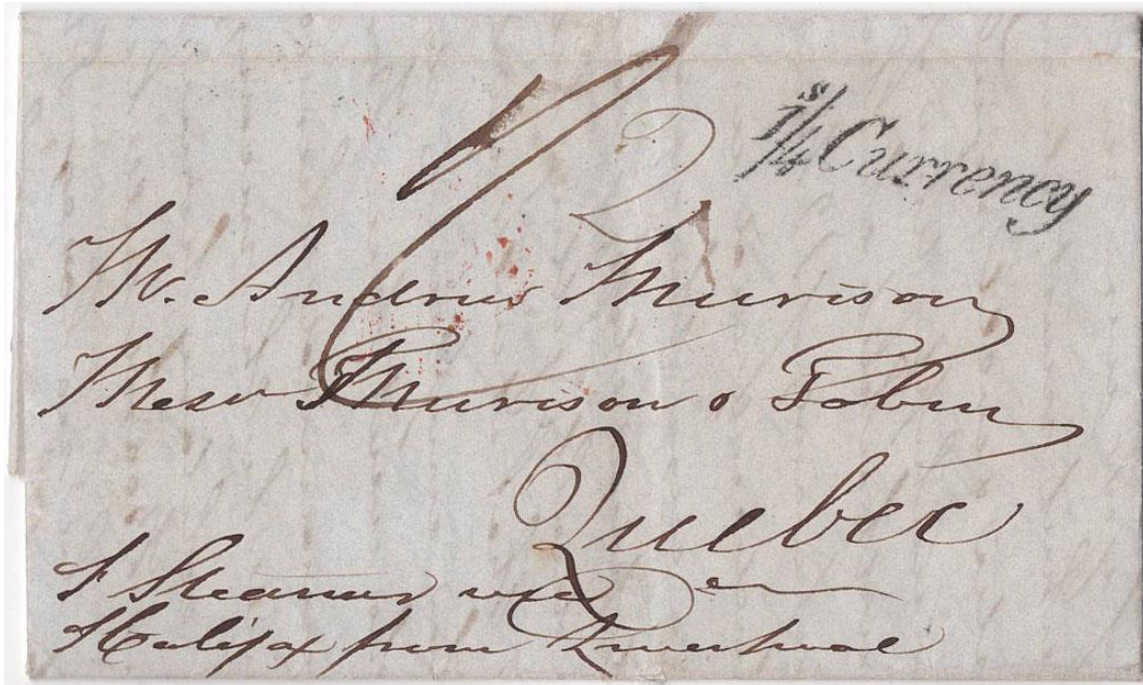 1s/4 Currency
Mr. Andrew Murison
Messrs Murison & Tobin
Quebec
P Steamer via
Halifax from Liverpool